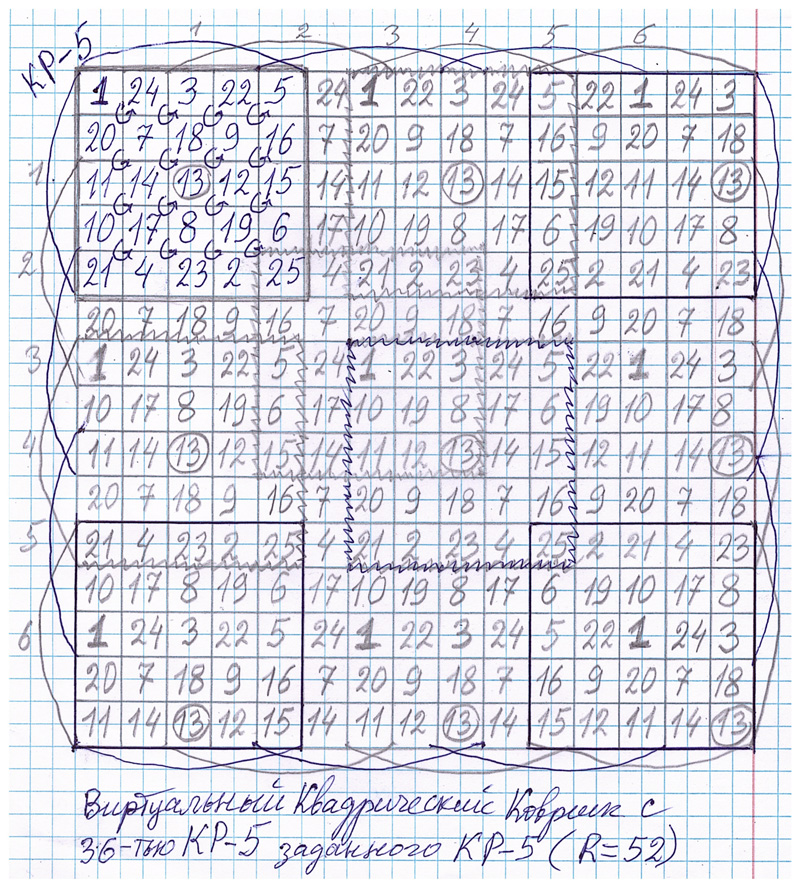 1 2 3 4 5 6
КР-5
1 24 3 22 5 24 1 22 3 24 5 22 1 24 3
20 7 18 9 16 7 20 9 18 7 16 9 20 7 18
1 11 14 13 12 15 14 11 12 13 14 15 12 11 14 13
10 17 8 19 6 17 10 19 8 17 6 19 10 17 8
2 21 4 23 2 25 4 21 2 23 4 25 2 21 4 23
20 7 18 9 16 7 20 9 18 7 16 9 20 7 18
3 1 24 3 22 5 24 1 22 3 24 5 22 1 24 3
10 17 8 19 6 17 10 19 8 17 6 19 10 17 8
4 11 14 13 12 15 14 11 12 13 14 15 12 11 14 13
20 7 18 9 16 7 20 9 18 7 16 9 20 7 18
5 21 4 23 2 25 4 21 2 23 4 25 2 21 4 23
10 17 8 19 6 17 10 19 8 17 6 19 10 17 8
6 1 24 3 22 5 24 1 22 3 24 5 22 1 24 3
20 7 18 9 16 7 20 9 18 7 16 9 20 7 18
11 14 13 12 15 14 11 12 13 14 15 12 11 14 13
Виртуальный Квадрический Коврик с
36-тью КР-5 заданного КР-5 (R=52)